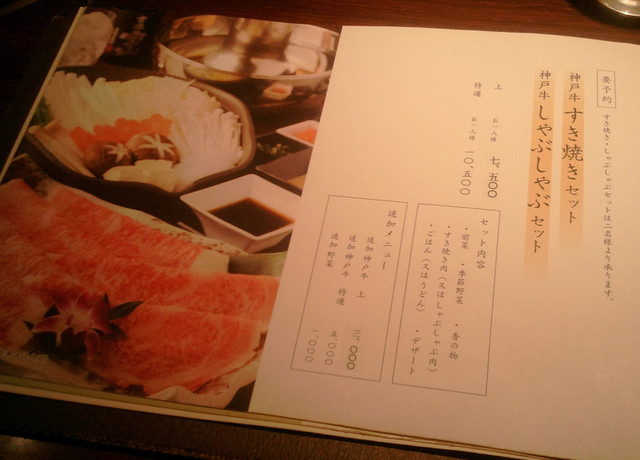 要予約
すき焼き・しゃぶしゃぶセットは二名様より承ります。
神戸牛 すき焼きセット
神戸牛 しゃぶしゃぶセット
上 お一人様 七、五〇〇
特選 お一人様 一〇、五〇〇
セット内容
・前菜 ・季節野菜 ・香の物
・すき焼き肉（又はしゃぶしゃぶ肉）
・ごはん（又はうどん） ・デザート
追加メニュー
追加神戸牛 上 三、〇〇〇
追加神戸牛 特選 五、〇〇〇
追加野菜 一、〇〇〇